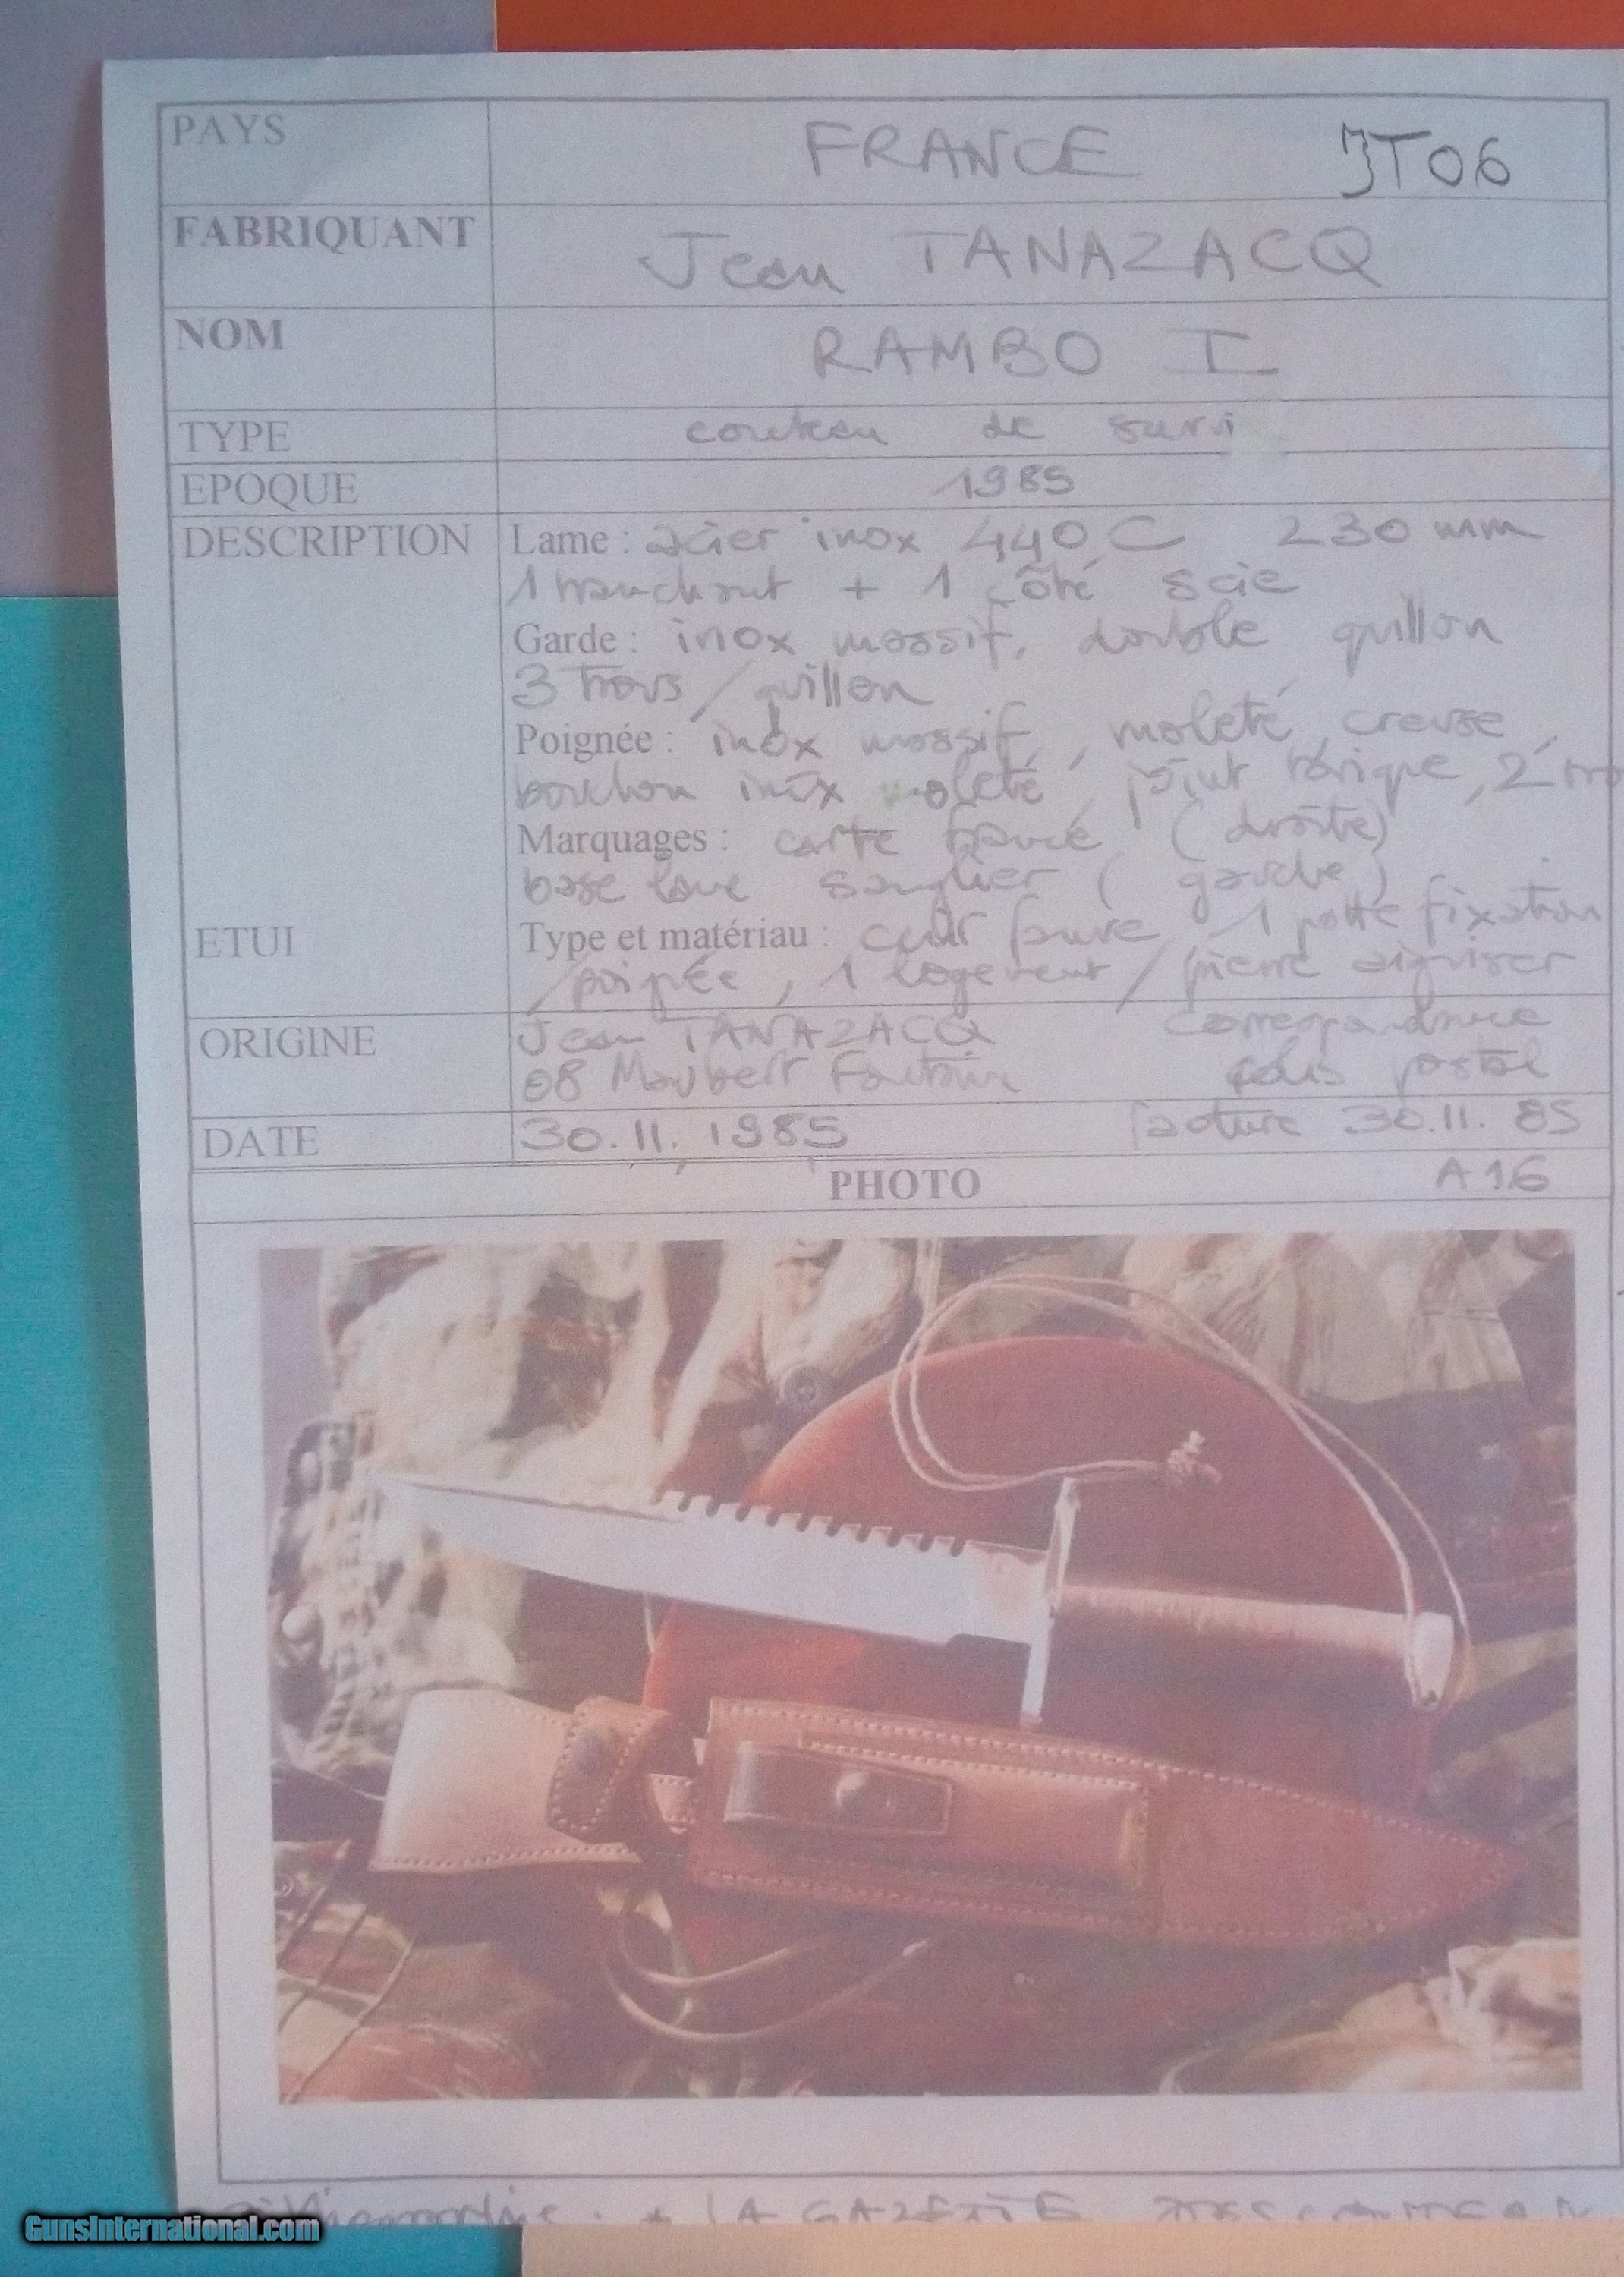 PAYS FRANCE JT06
FABRIQUANT Jean TANAZACQ
NOM RAMBO I
TYPE couteau de survi
EPOQUE 1985
DESCRIPTION Lame : acier inox 440 C 230 mm
1 tranchant + 1 côté scie
Garde : inox massif, double quillon
3 trous / quillon
Poignée : inox massif, moleté, creuse,
bouchon inox moleté, joint torique, 2
Marquages : carte (droite)
base lame sanglier (gauche)
ETUI Type et matériau : cuir fauve / 1 patte fixation
/ poignée, 1 logement / pierre aiguiser
ORIGINE Jean TANAZACQ Correspondance
08 Maubert Fontaine colis postal
DATE 30.11.1985 facture 30.11.85
PHOTO A16
LA GAZETTE
GunsInternational.com